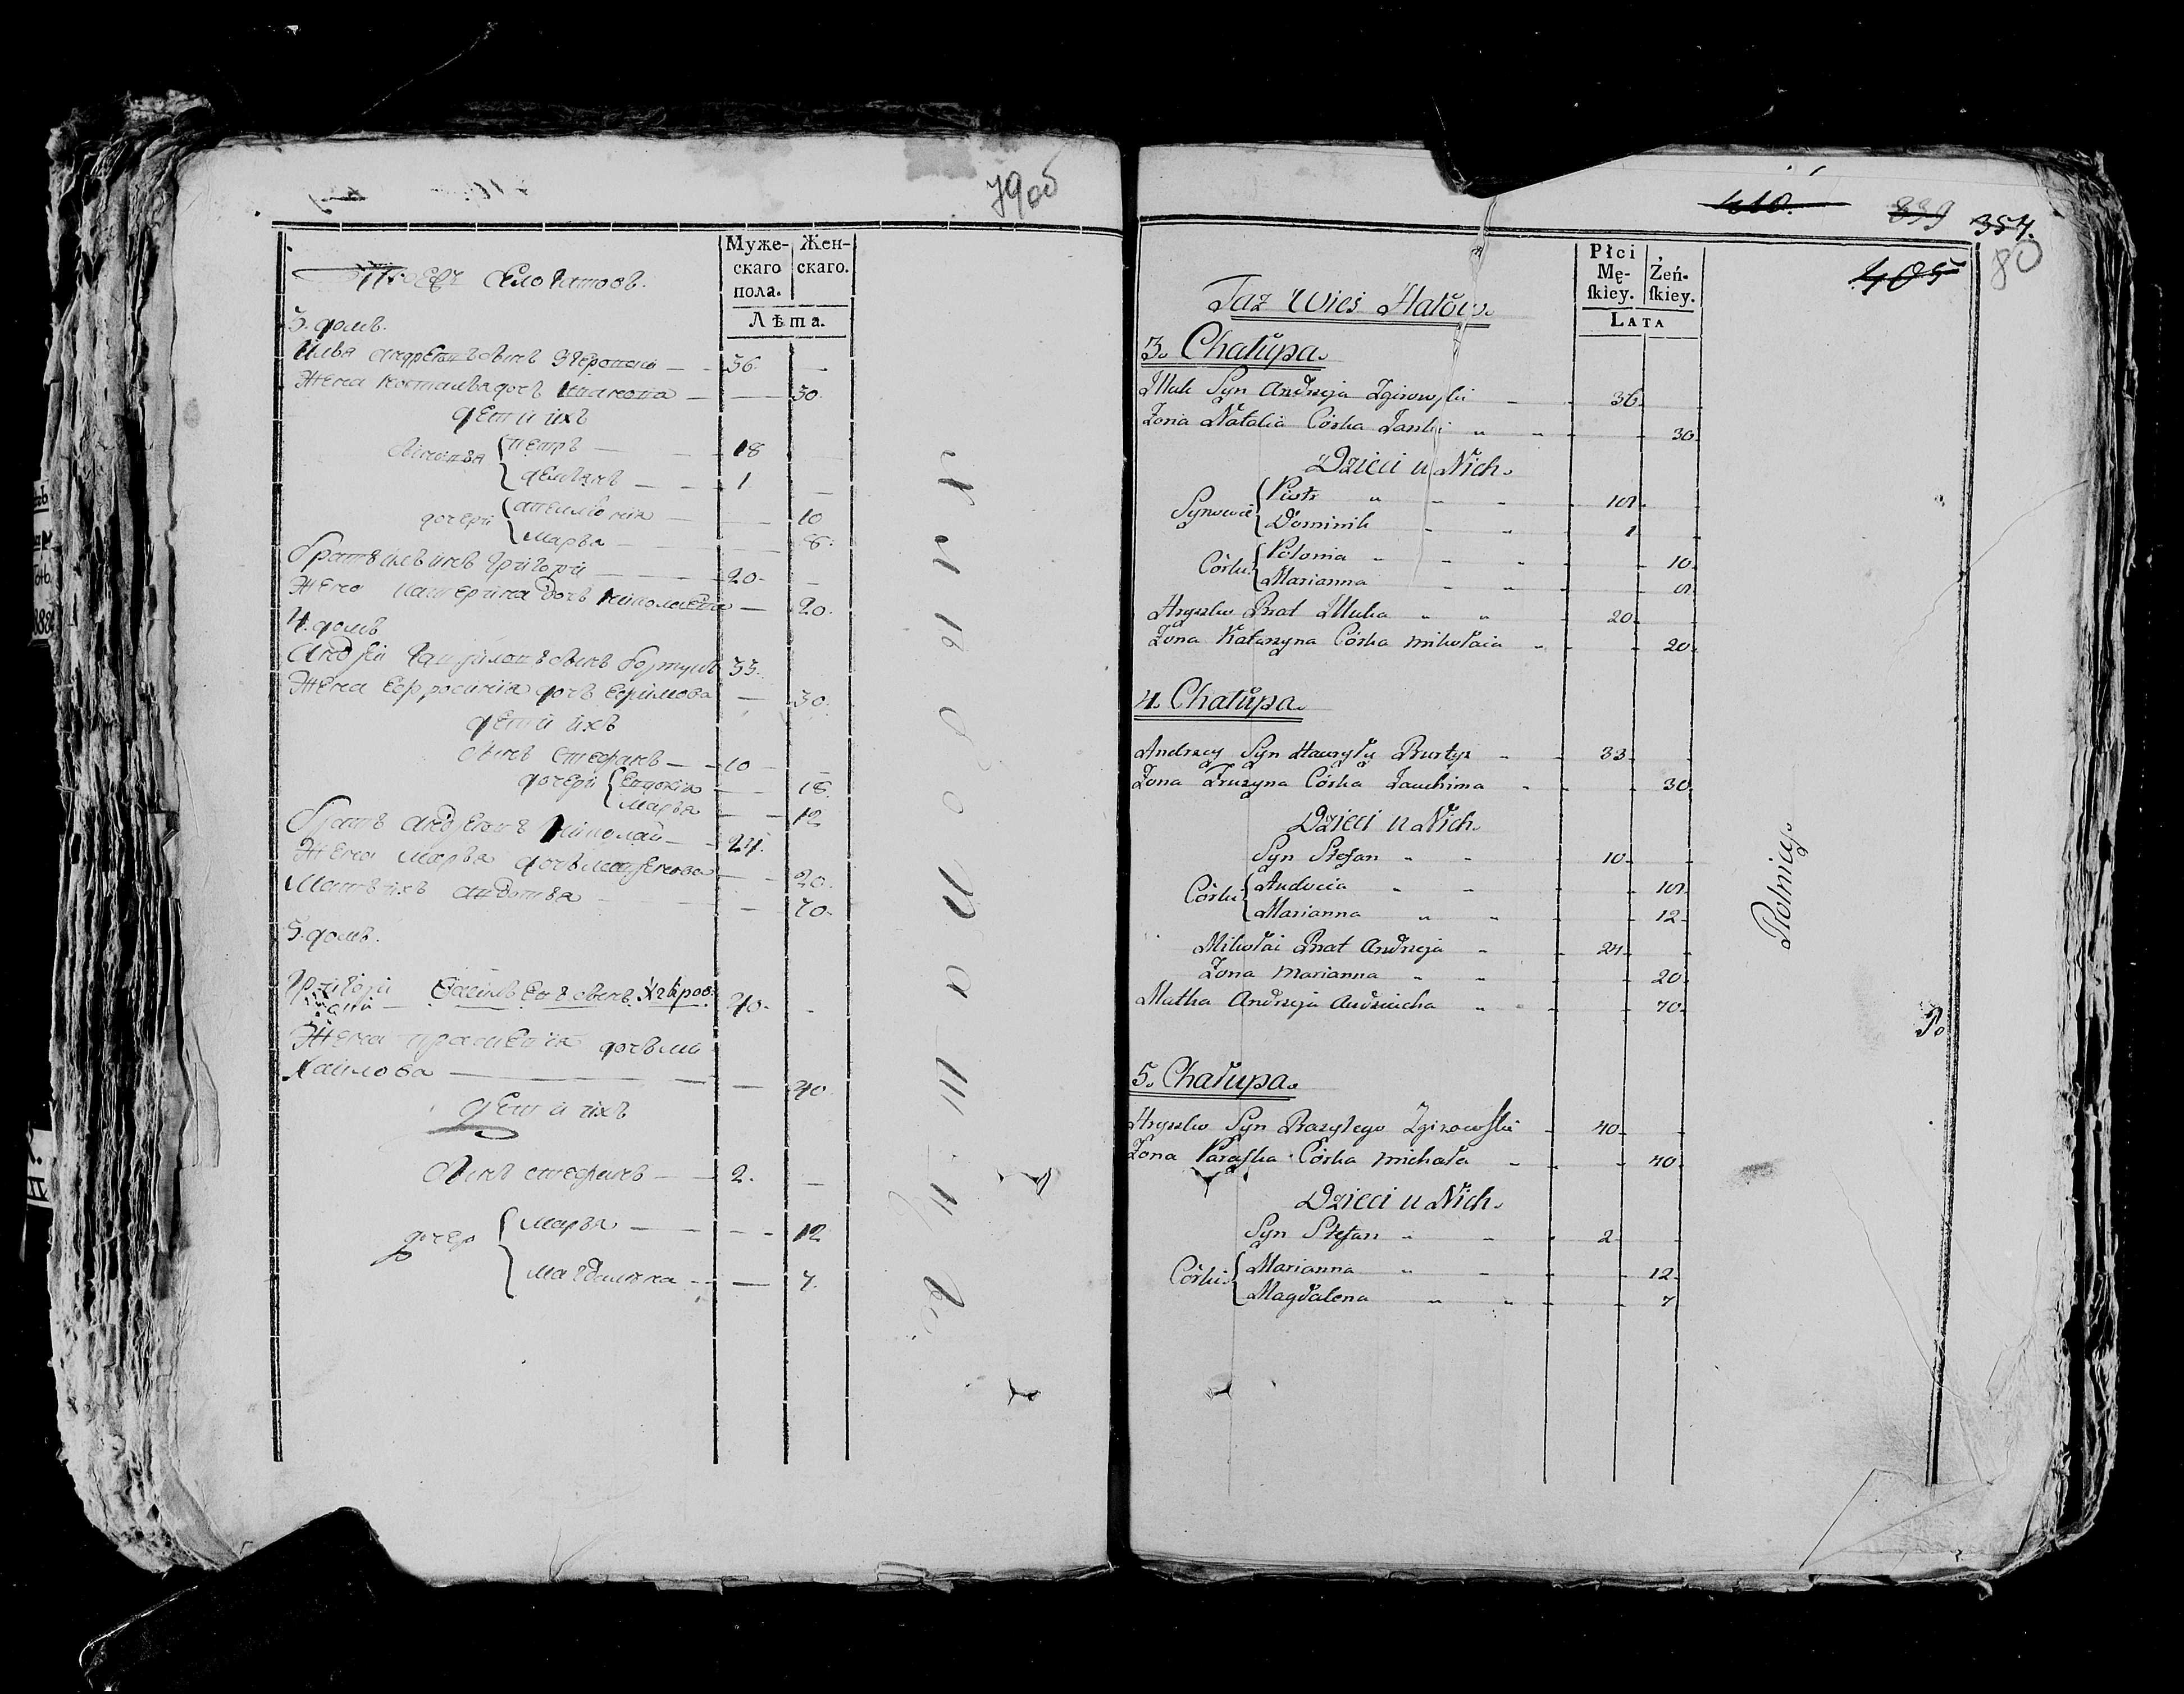 79 об
Муже-
скаго
пола.
Жен-
скаго.
Лѣта.
село Гатовъ.
3. домъ.
Илья Андреевъ сынъ — 36. —
Жена Наталья дочь — 30.
дети ихъ
сыновья
Петръ — 18
Демьянъ — 1
дочери
Апелонія — 10
Марья — 8.
братъ Ильинъ Григори — 20. —
Жена Катерина дочь Николаева — 20.
4. домъ
Андрей Гаврыловъ сынъ 33.
Жена Ефросинія дочь Ефимова — 30.
дети ихъ
сынъ Стефанъ — 10 —
дочери
Евдокія — 18.
Марья — 12
братъ Андреевъ Николай — 24.
Жена Марья — 20.
Мать ихъ — 70.
5. домъ.
Григори Васильевъ сынъ 40. —
Жена дочь Ми-
хайлова — 40.
дети ихъ
сынъ Стефанъ — 2. —
дочер
Марья — 12
Магдалена — 7.
410. 839 354.
80
405
Płci
Mę-
skiey.
Żeń-
skiey.
Lata
Taż Wieś Hatów.
3. Chałupa.
Illuk Syn Andrzeja Zgirowski 36
Żona Natalia Córka Jaśki 30
Dzieci u Nich.
Synowie
Piotr 18
Dominik 1
Córki
Polonia 10
Marianna 8
Hryszko Brat Illuka 20
Żona Katarzyna Córka Mikołaia 20
4. Chałupa.
Andrzey Syn Hawryły 33
Żona Córka Jauchima 30
Dzieci u Nich.
Syn Stefan 10
Córki
Audocia 18
Marianna 12
Mikołai Brat Andrzeja 24
Żona Marianna 20
Matka Andrzeja 70
Rolnicy
5. Chałupa.
Hryszko Syn Bazylego Zgirowski 40
Żona Paraska Córka Michała 40
Dzieci u Nich.
Syn Stefan 2
Córki
Marianna 12
Magdalena 7